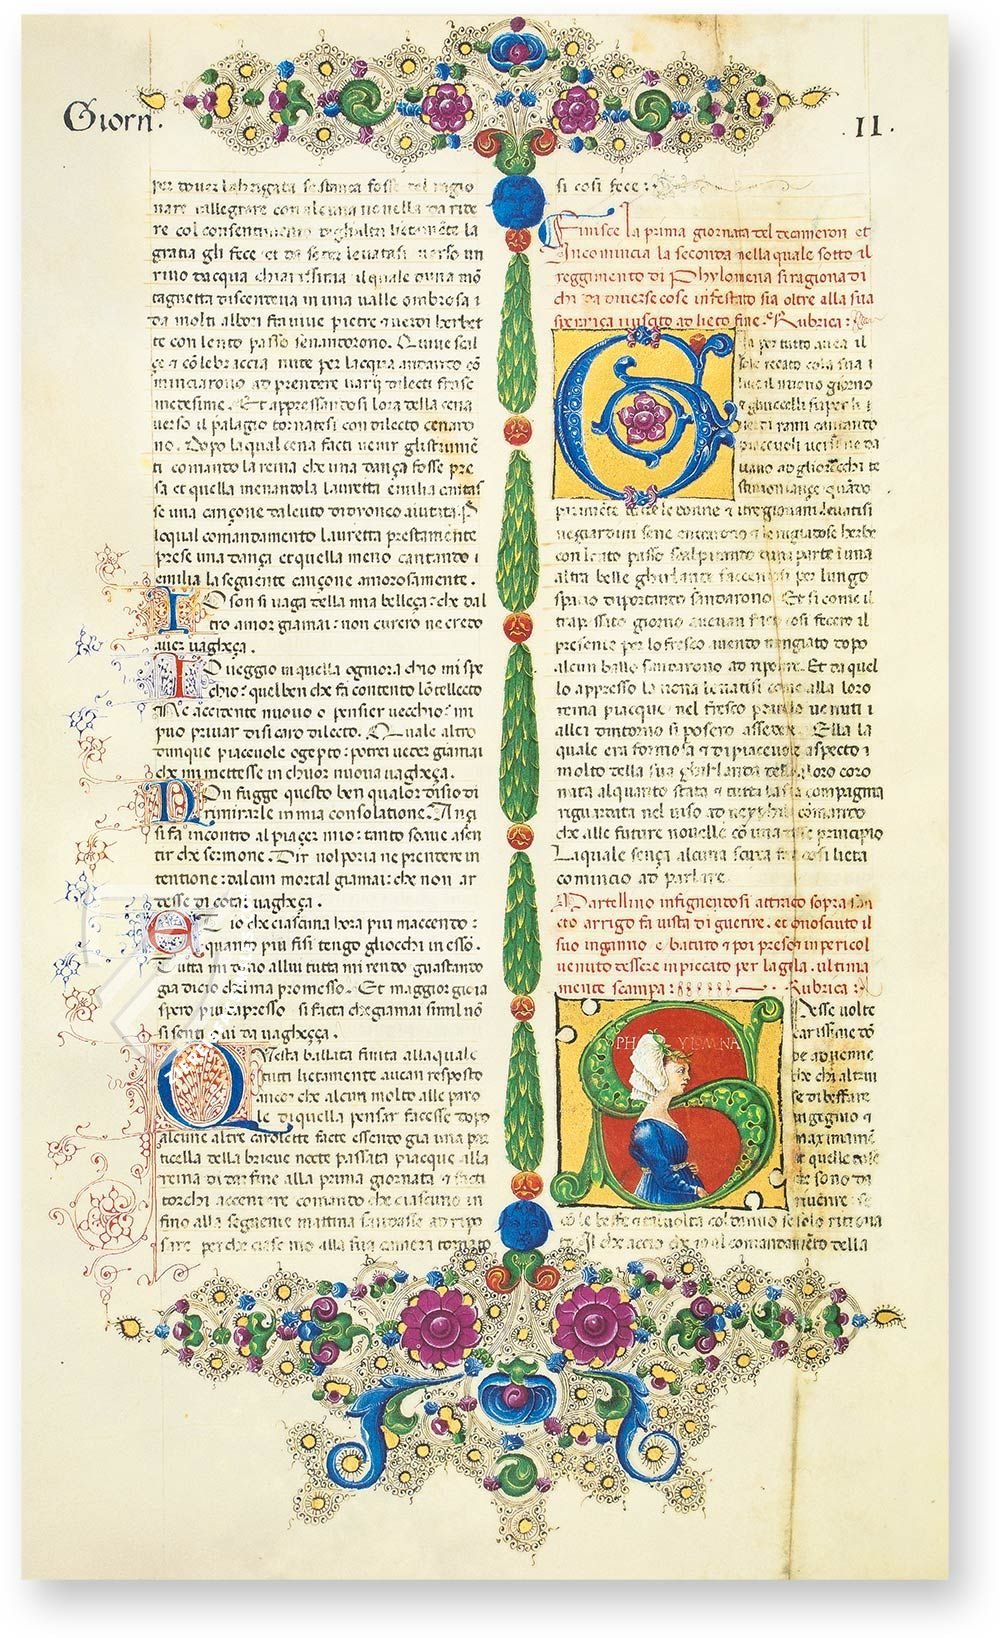 Giorn. .II.
per dover la brigata se stanca fosse del ragio
nare rallegrare con alcuna novella da ride
re col consentimento degli altri lietamẽte la
gratia gli fece et da seder levatasi verso un
rivo dacqua chiarissima il quale duna mõ
tagnetta discendeva in una valle ombrosa i
da molti albori fra vive pietre e verdi herbet
te con lento passo senandorono. Quive scal
çe e cõ le braccia nude per lacqua andando cõ
minciarono ad prendere varij dilecti fra se
medesime. Et appressandosi lora della cena
verso il palagio tornatesi con dilecto cenaro
no. Dopo la qual cena facti venir gli strumẽ
ti comando la reina che una dança fosse pre
sa et quella menando la lauretta emilia cantas
se una cançone daleuto di dyoneo aiutata. P
lo qual comandamento lauretta prestamente
prese una dança et quella meno cantando i
emilia la seguente cançone amorosamente.
IO son si vaga della mia belleça: che dal
tro amor giamai: non curero ne credo
aver vagheça.
IO veggio in quella ognora chio mi spe
chio: quel ben che fa contento lõtellecto
Ne accidente nuovo o pensier vecchio: mi
puo privar di si caro dilecto. Quale altro
dunque piacevole ogepto: potrei veder giamai
che mi mettesse in chuor nuova vagheça.
NOn fugge questo ben qualor disio di
rimirarle in mia consolatione. Ançi
si fa incontro al piaçer mio: tanto soave a sen
tir che sermone. Dir nol poria ne prendere in
tentione: dalcun mortal giamai: che non ar
desse di cotai vagheça.
ET io che ciascuna hora piu maccendo:
quanto piu fisi tengo gliocchi in esso.
Tutta mi dono allui tutta mi rendo guastando
gia di cio chei ma promesso. Et maggior gioia
spero piu dapresso si facta che giamai simil nõ
si senti qui da vagheçça.
QVesta ballata finita alla quale
tutti lietamente avean resposto
anchor che alcun molto alle paro
le di quella pensar facesse dopo
alcune altre carolette facte essendo gia una par
ticella della brieve nocte passata piacque alla
reina di dar fine alla prima giornata e facti
torchi accendere comando che ciascuno in
fino alla seguente mattina sandasse ad ripo
sare per che ciascuno alla sua camera tornato
si cosi fece:
Finisce la prima giornata del decameron et
Incomincia la seconda nella quale sotto il
reggimento di Phylomena si ragiona di
chi da diverse cose infestato sia oltre alla sua
sperãça riuscito ad lieto fine. Rubrica:
Gia per tutto avea il
sole recato colla sua i
luce il nuovo giorno
e gliuccelli su per li i
verdi rami cantando
piacevoli versi ne da
vano ad gliorecchi te
stimoniançe quãdo
parimẽte tutte le donne e i tre giovani levatisi
ne giardini sene entrarono e le rugiadose herbe
con lento passo scalpitando duna parte i una
altra belle ghirlande faccendosi per lungo
spatio diportando sandarono. Et si come il
trapassato giorno avevan facto cosi fecero il
presente per lo fresco avendo mangiato dopo
alcun ballo sandarono ad riposare. Et da quel
lo appresso la nona levatisi come alla loro
reina piacque nel fresco pratello venuti i
allei dintorno si posero assedere. Ella la
quale era formosa e di piacevole aspecto i
molto della sua ghirlanda dello aloro coro
nata alquanto stata e tutta la sua compagnia
riguardata nel viso ad neyphile comando
che alle future novelle cõ una desse principio
La quale sença alcuna scusa far cosi lieta
comincio ad parlare.
Martellino infignendosi attracto sopra san
cto arrigo fa vista di guerire. et conosciuto il
suo inganno e batuto e poi preso e in pericol
venuto dessere inpiccato per la gola. ultima
mente scampa: Rubrica:
PHYLOMNA
SPesse volte
carissime dõ
ne advenne
che chi altrui
se di beffare
ingegnio e
maximamẽ
te quelle cose
che sono da
riverire se
cõ le beffe e talvolta col danno se solo ritrova
to. Il che accio che io al comandamẽto della